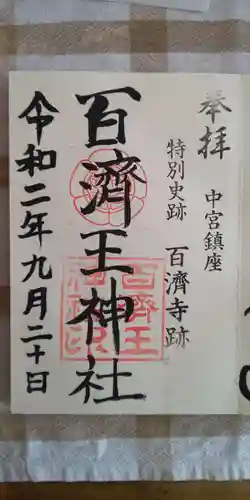 奉拝
中宮鎮座
特別史跡 百済寺跡
百濟王神社
令和二年九月二十日
百濟王神社印